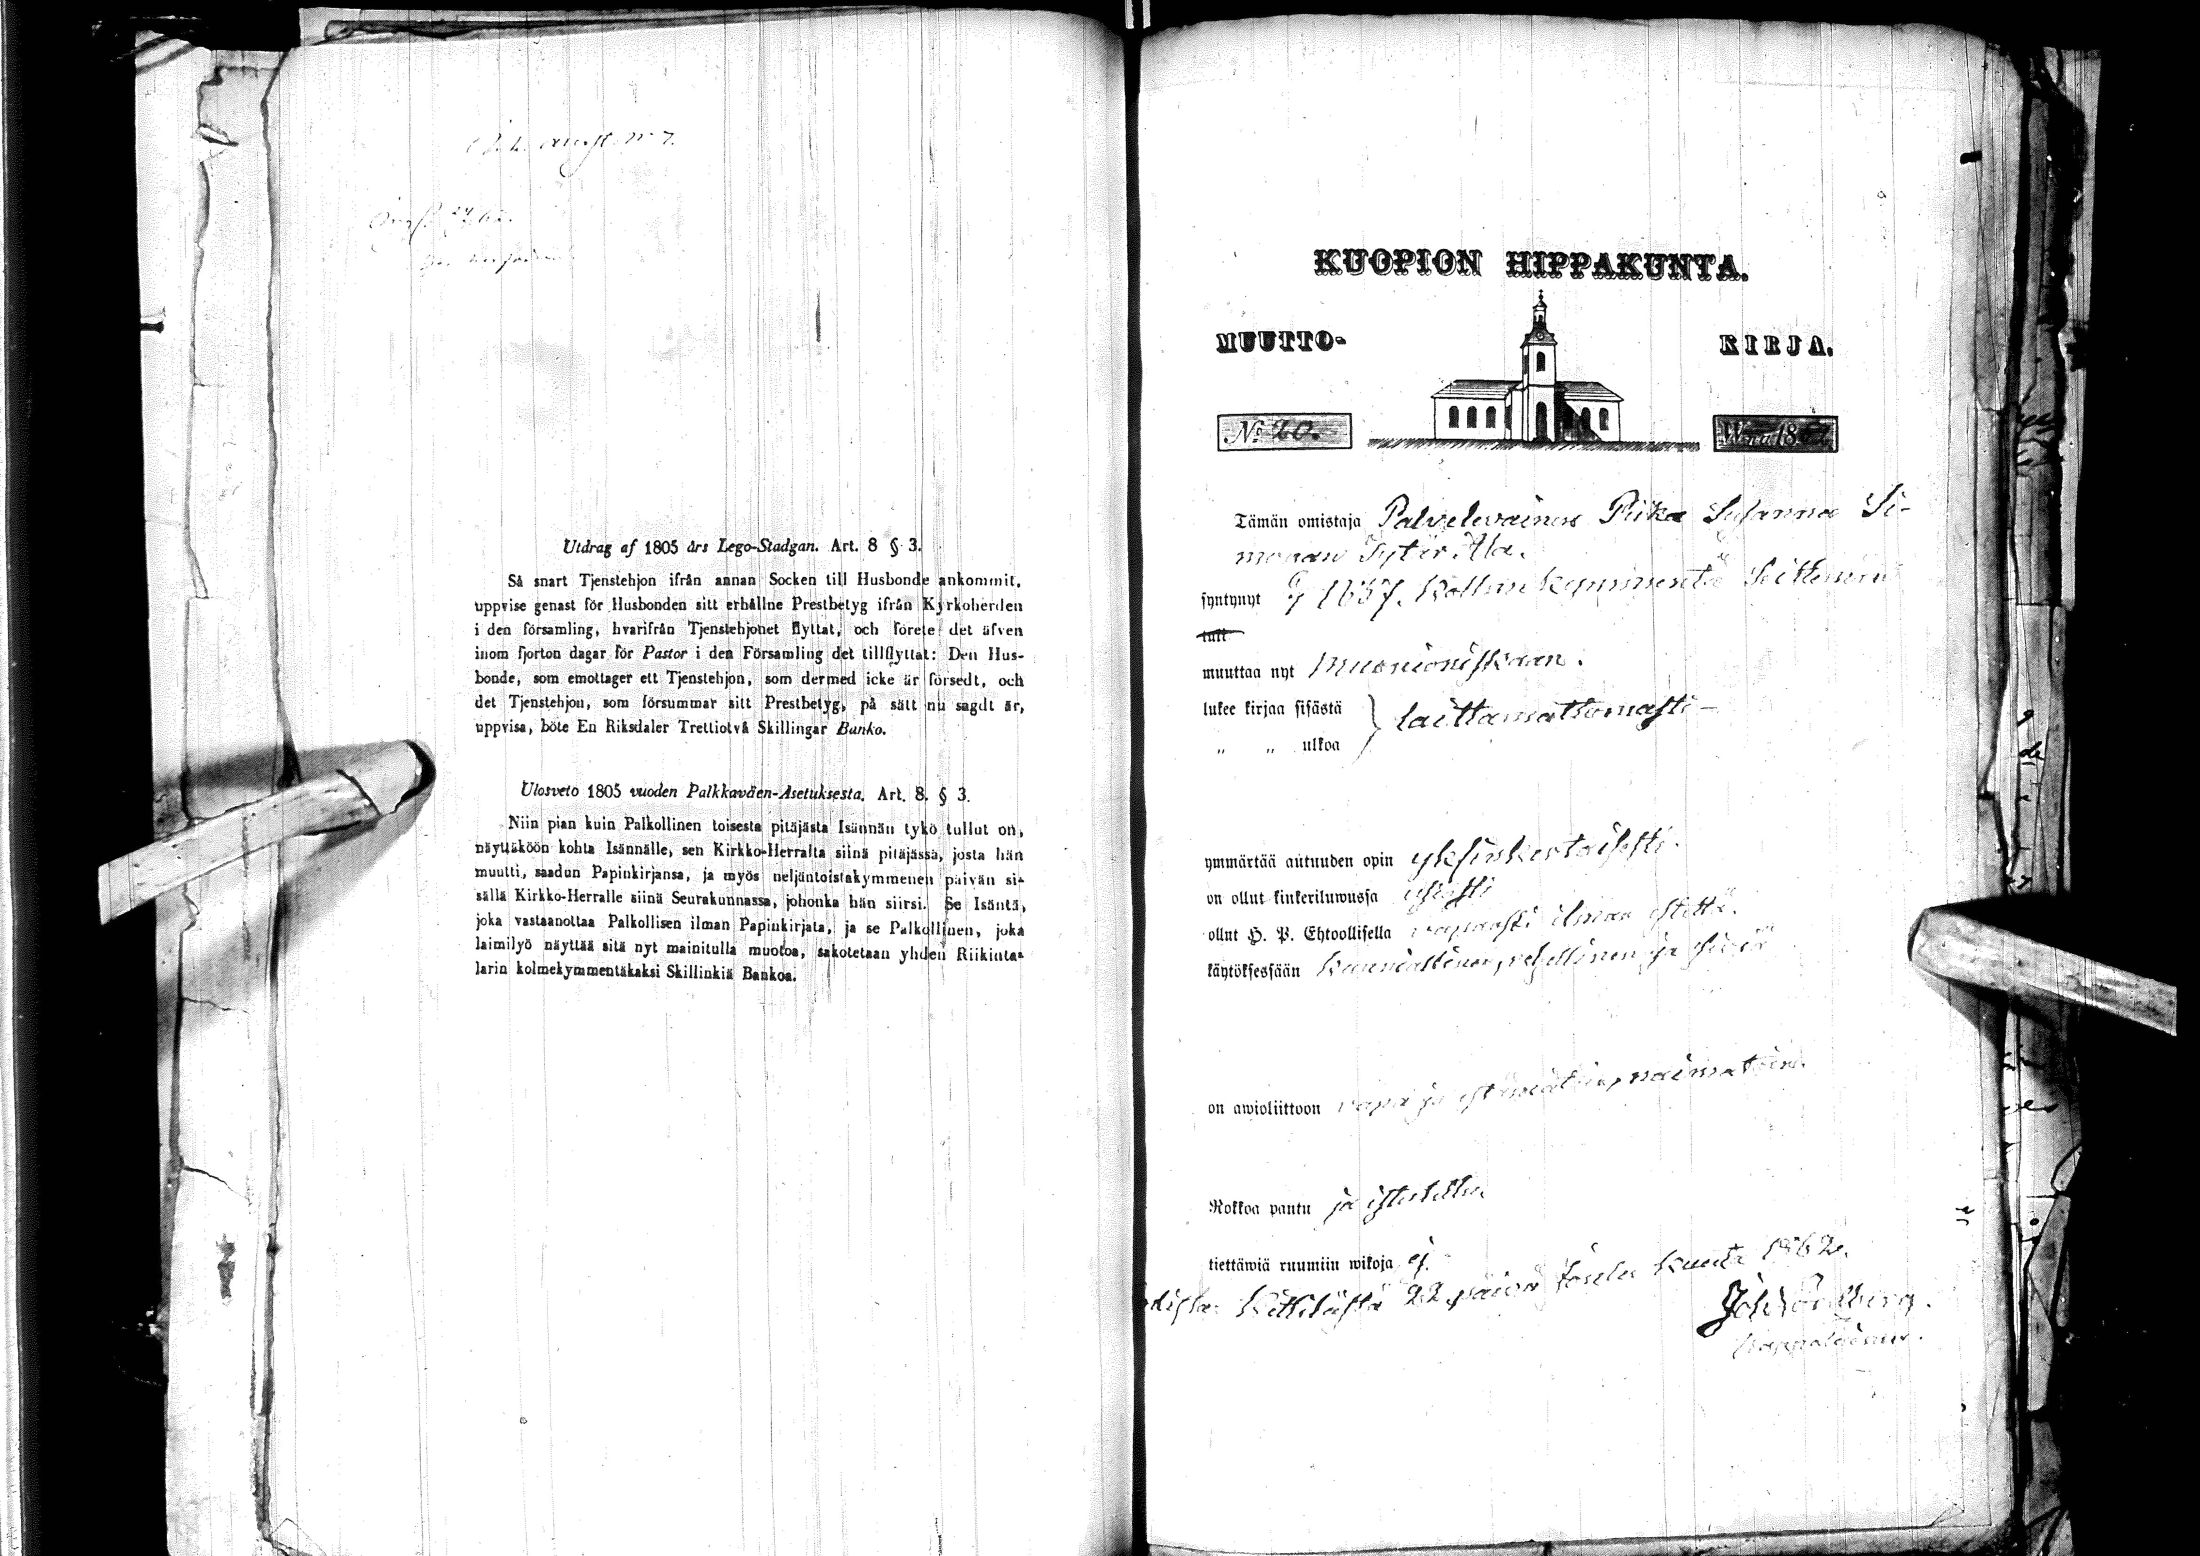 Utdrag af 1805 års Lego-Stadgan. Art. 8 § 3.
Så snart Tjenstehjon ifrån annan Socken till Husbonde ankommit,
uppvise genast för Husbonden sitt erhållne Prestbetyg ifrån Kyrkoherden
i den församling, hvarifrån Tjenstehjonet flyttat, och förete det äfven
inom fjorton dagar för Pastor i den Församling det tillflyttat: Den Hus-
bonde, som emottager ett Tjenstehjon, som dermed icke är försedt, och
det Tjenstehjon, som försummar sitt Prestbetyg, på sätt nu sagdt är,
uppvisa, böte En Riksdaler Trettiotvå Skillingar Banko.
Ulosveto 1805 vuoden Palkkaväen-Asetuksesta. Art. 8. § 3.
Niin pian kuin Palkollinen toisesta pitäjästä Isännän tykö tullut on,
näyttäköön kohta Isännälle, sen Kirkko-Herralta siinä pitäjässä, josta hän
muutti, saadun Papinkirjansa, ja myös neljäntoistakymmenen päivän si-
sällä Kirkko-Herralle siinä Seurakunnassa, johonka hän siirsi. Se Isäntä,
joka vastaanottaa Palkollisen ilman Papinkirjata, ja se Palkollinen, joka
laimilyö näyttää sitä nyt mainitulla muotoa, sakotetaan yhden Riikinta-
larin kolmekymmentäkaksi Skillinkiä Bankoa.
KUOPION HIPPAKUNTA.
MUUTTO- KIRJA.
No 20. Wnna 1862
Tämän omistaja Palvelevainen Riika Susanna Si-
monan Tytär Ala.
syntynyt 1837. Kolmekymmentä Seittemän
tull
muuttaa nyt Muonioniskaan.
lukee kirjaa sisästä } laittamattomasti
" " ulkoa
ymmärtää autuuden opin yksinkertaisesti.
on ollut kinkeriluwussa
ollut H. P. Ehtoollisella vapaasti ilman estettä.
käytöksessään kunniallinen, rehellinen ja siviä
on awioliittoon vapa ja naimatoin.
Rokkoa pantu ja istutettu
tiettäwiä ruumiin wikoja ej.
Kittilästä 22 päivä Joulu Kuuta 1862.
Joh Nordberg.
kappalainen.